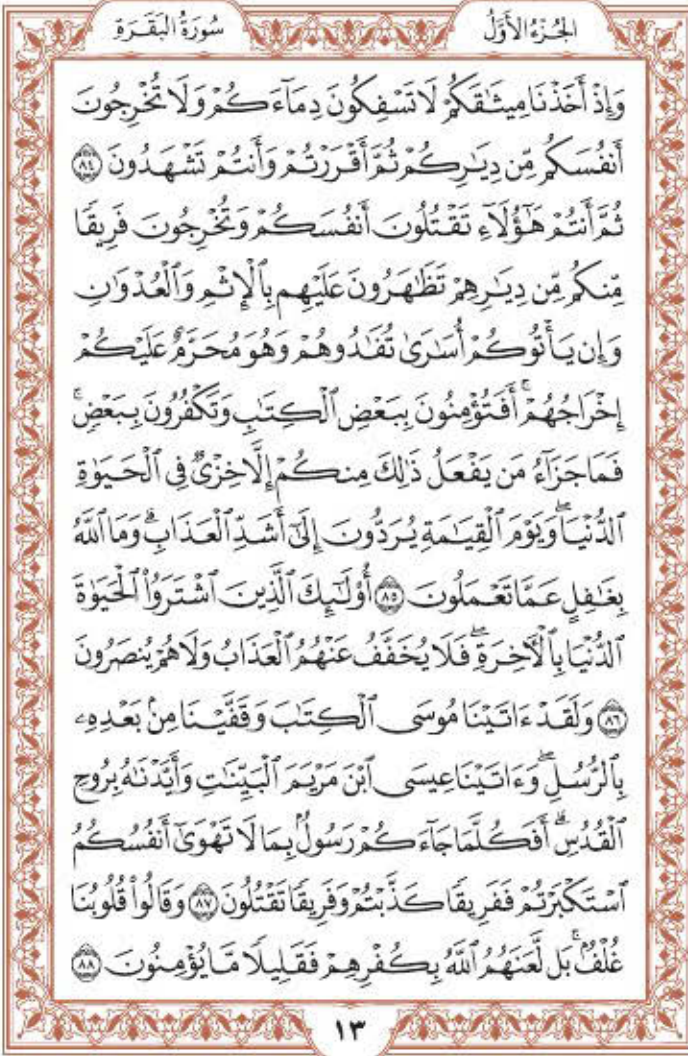 الجُزْءُ الأَوَّلُ
سُورَةُ البَقَرَةِ
وَإِذْ أَخَذْنَا مِيثَٰقَكُمْ لَا تَسْفِكُونَ دِمَآءَكُمْ وَلَا تُخْرِجُونَ
أَنفُسَكُم مِّن دِيَٰرِكُمْ ثُمَّ أَقْرَرْتُمْ وَأَنتُمْ تَشْهَدُونَ ٨٤
ثُمَّ أَنتُمْ هَٰٓؤُلَآءِ تَقْتُلُونَ أَنفُسَكُمْ وَتُخْرِجُونَ فَرِيقًا
مِّنكُم مِّن دِيَٰرِهِمْ تَظَٰهَرُونَ عَلَيْهِم بِٱلْإِثْمِ وَٱلْعُدْوَٰنِ
وَإِن يَأْتُوكُمْ أُسَٰرَىٰ تُفَٰدُوهُمْ وَهُوَ مُحَرَّمٌ عَلَيْكُمْ
إِخْرَاجُهُمْ ۚ أَفَتُؤْمِنُونَ بِبَعْضِ ٱلْكِتَٰبِ وَتَكْفُرُونَ بِبَعْضٍ ۚ
فَمَا جَزَآءُ مَن يَفْعَلُ ذَٰلِكَ مِنكُمْ إِلَّا خِزْىٌ فِى ٱلْحَيَوٰةِ
ٱلدُّنْيَا ۖ وَيَوْمَ ٱلْقِيَٰمَةِ يُرَدُّونَ إِلَىٰٓ أَشَدِّ ٱلْعَذَابِ ۗ وَمَا ٱللَّهُ
بِغَٰفِلٍ عَمَّا تَعْمَلُونَ ٨٥ أُو۟لَٰٓئِكَ ٱلَّذِينَ ٱشْتَرَوُا۟ ٱلْحَيَوٰةَ
ٱلدُّنْيَا بِٱلْأَخِرَةِ ۖ فَلَا يُخَفَّفُ عَنْهُمُ ٱلْعَذَابُ وَلَا هُمْ يُنصَرُونَ
٨٦ وَلَقَدْ ءَاتَيْنَا مُوسَى ٱلْكِتَٰبَ وَقَفَّيْنَا مِنۢ بَعْدِهِۦ
بِٱلرُّسُلِ ۖ وَءَاتَيْنَا عِيسَى ٱبْنَ مَرْيَمَ ٱلْبَيِّنَٰتِ وَأَيَّدْنَٰهُ بِرُوحِ
ٱلْقُدُسِ ۗ أَفَكُلَّمَا جَآءَكُمْ رَسُولٌۢ بِمَا لَا تَهْوَىٰٓ أَنفُسُكُمُ
ٱسْتَكْبَرْتُمْ فَفَرِيقًا كَذَّبْتُمْ وَفَرِيقًا تَقْتُلُونَ ٨٧ وَقَالُوا۟ قُلُوبُنَا
غُلْفٌۢ ۚ بَل لَّعَنَهُمُ ٱللَّهُ بِكُفْرِهِمْ فَقَلِيلًا مَّا يُؤْمِنُونَ ٨٨
١٣